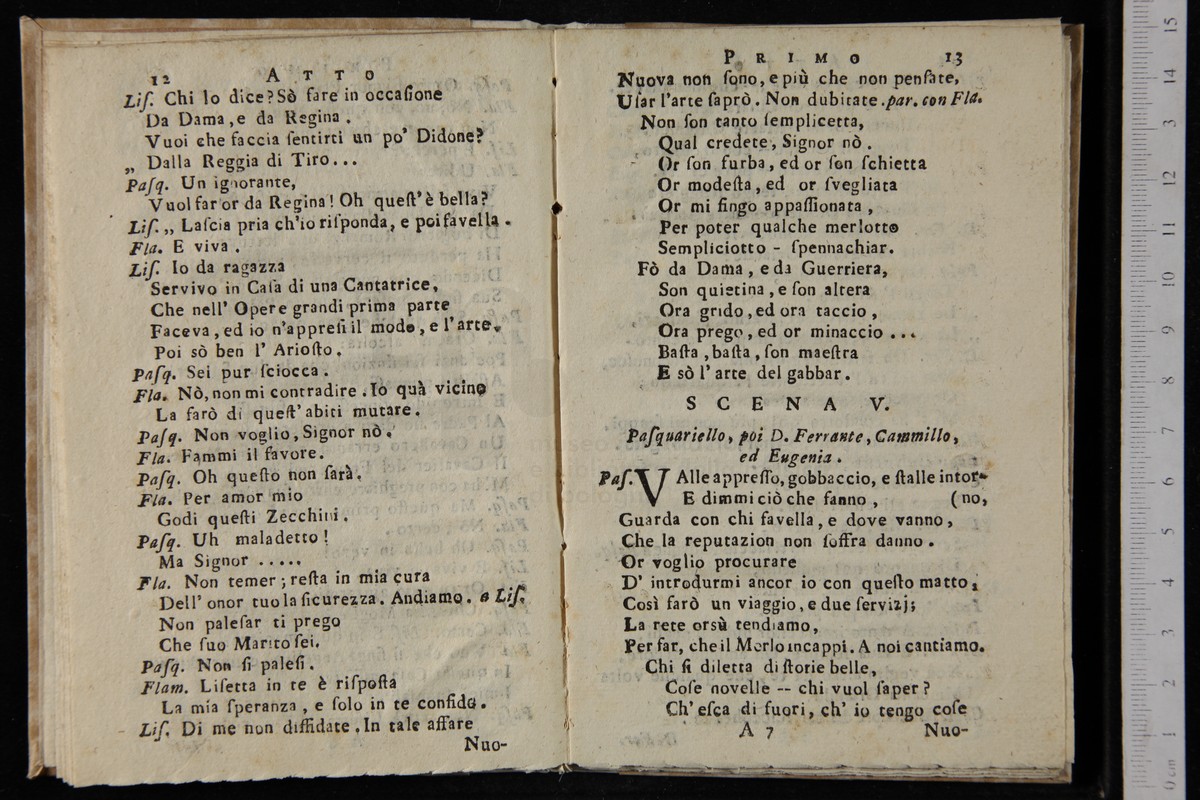 12 ATTO
Liſ. Chi lo dice? Sò fare in occaſione
Da Dama, e da Regina.
Vuoi che faccia ſentirti un po' Didone?
„ Dalla Reggia di Tiro...
Paſq. Un ignorante,
Vuol far or da Regina! Oh queſt' è bella?
Liſ. „ Laſcia pria ch'io riſponda, e poi favella.
Fla. E viva.
Liſ. Io da ragazza
Servivo in Caſa di una Cantatrice,
Che nell' Opere grandi prima parte
Faceva, ed io n'appreſi il modo, e l'arte.
Poi sò ben l' Arioſto.
Paſq. Sei pur ſciocca.
Fla. Nò, non mi contradire. Io quà vicino
La farò di queſt' abiti mutare.
Paſq. Non voglio, Signor nò.
Fla. Fammi il favore.
Paſq. Oh queſto non ſarà.
Fla. Per amor mio
Godi queſti Zecchini.
Paſq. Uh maladetto!
Ma Signor .....
Fla. Non temer; reſta in mia cura
Dell' onor tuo la ſicurezza. Andiamo. a Liſ.
Non paleſar ti prego
Che ſuo Marito ſei.
Paſq. Non ſi paleſi.
Flam. Liſetta in te è riſpoſta
La mia ſperanza, e ſolo in te confido.
Liſ. Di me non diffidate. In tale affare
Nuo-
PRIMO 13
Nuova non ſono, e più che non penſate,
Uſar l'arte ſaprò. Non dubitate. par. con Fla.
Non ſon tanto ſemplicetta,
Qual credete, Signor nò.
Or ſon furba, ed or ſon ſchietta
Or modeſta, ed or ſvegliata
Or mi fingo appaſſionata,
Per poter qualche merlotto
Sempliciotto - ſpennachiar.
Fò da Dama, e da Guerriera,
Son quietina, e ſon altera
Ora grido, ed ora taccio,
Ora prego, ed or minaccio...
Baſta, baſta, ſon maeſtra
E sò l' arte del gabbar.
SCENA V.
Paſquariello, poi D. Ferrante, Cammillo,
ed Eugenia.
Paſ. VAlle appreſſo, gobbaccio, e ſtalle intor-
E dimmi ciò che fanno, (no,
Guarda con chi favella, e dove vanno,
Che la reputazion non ſoffra danno.
Or voglio procurare
D' introdurmi ancor io con queſto matto,
Così farò un viaggio, e due ſervizj;
La rete orsù tendiamo,
Per far, che il Merlo incappi. A noi cantiamo.
Chi ſi diletta di ſtorie belle,
Coſe novelle -- chi vuol ſaper?
Ch' eſca di fuori, ch' io tengo coſe
A 7 Nuo-